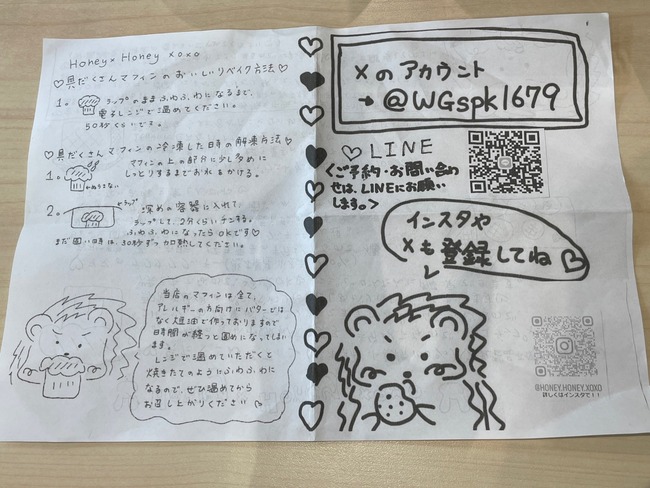 Honey×Honey xoxo
♡具だくさんマフィンのおいしいリベイク方法♡
1。ラップのままふわふわになるまで、
電子レンジで温めてください。
50秒くらいです。
♡具だくさんマフィンの冷凍した時の解凍方法♡
1。マフィンの上の部分に少し多めに
しっとりするまでお水をかける。
2。深めの容器に入れて、
ラップ
ラップして、2分くらいチンする。
ふわふわになったらOKです♡
まだ固い時は、30秒ずつ加熱してください。
当店のマフィンは全て、
アレルギーの方向けにバターでは
なく大豆油で作っておりますので
時間が経つと固めになってしまい
ます。
レンジで温めていただくと
焼きたてのようにふわふわに
なるので、ぜひ温めてから
お召し上がりください♡
Xのアカウント
→@WGspk1679
♡LINE
<ご予約・お問い合わ
せは、LINEにお願い
します。>
インスタや
Xも登録してね♡
@HONEY.HONEY.XOXO
詳しくはインスタで!!